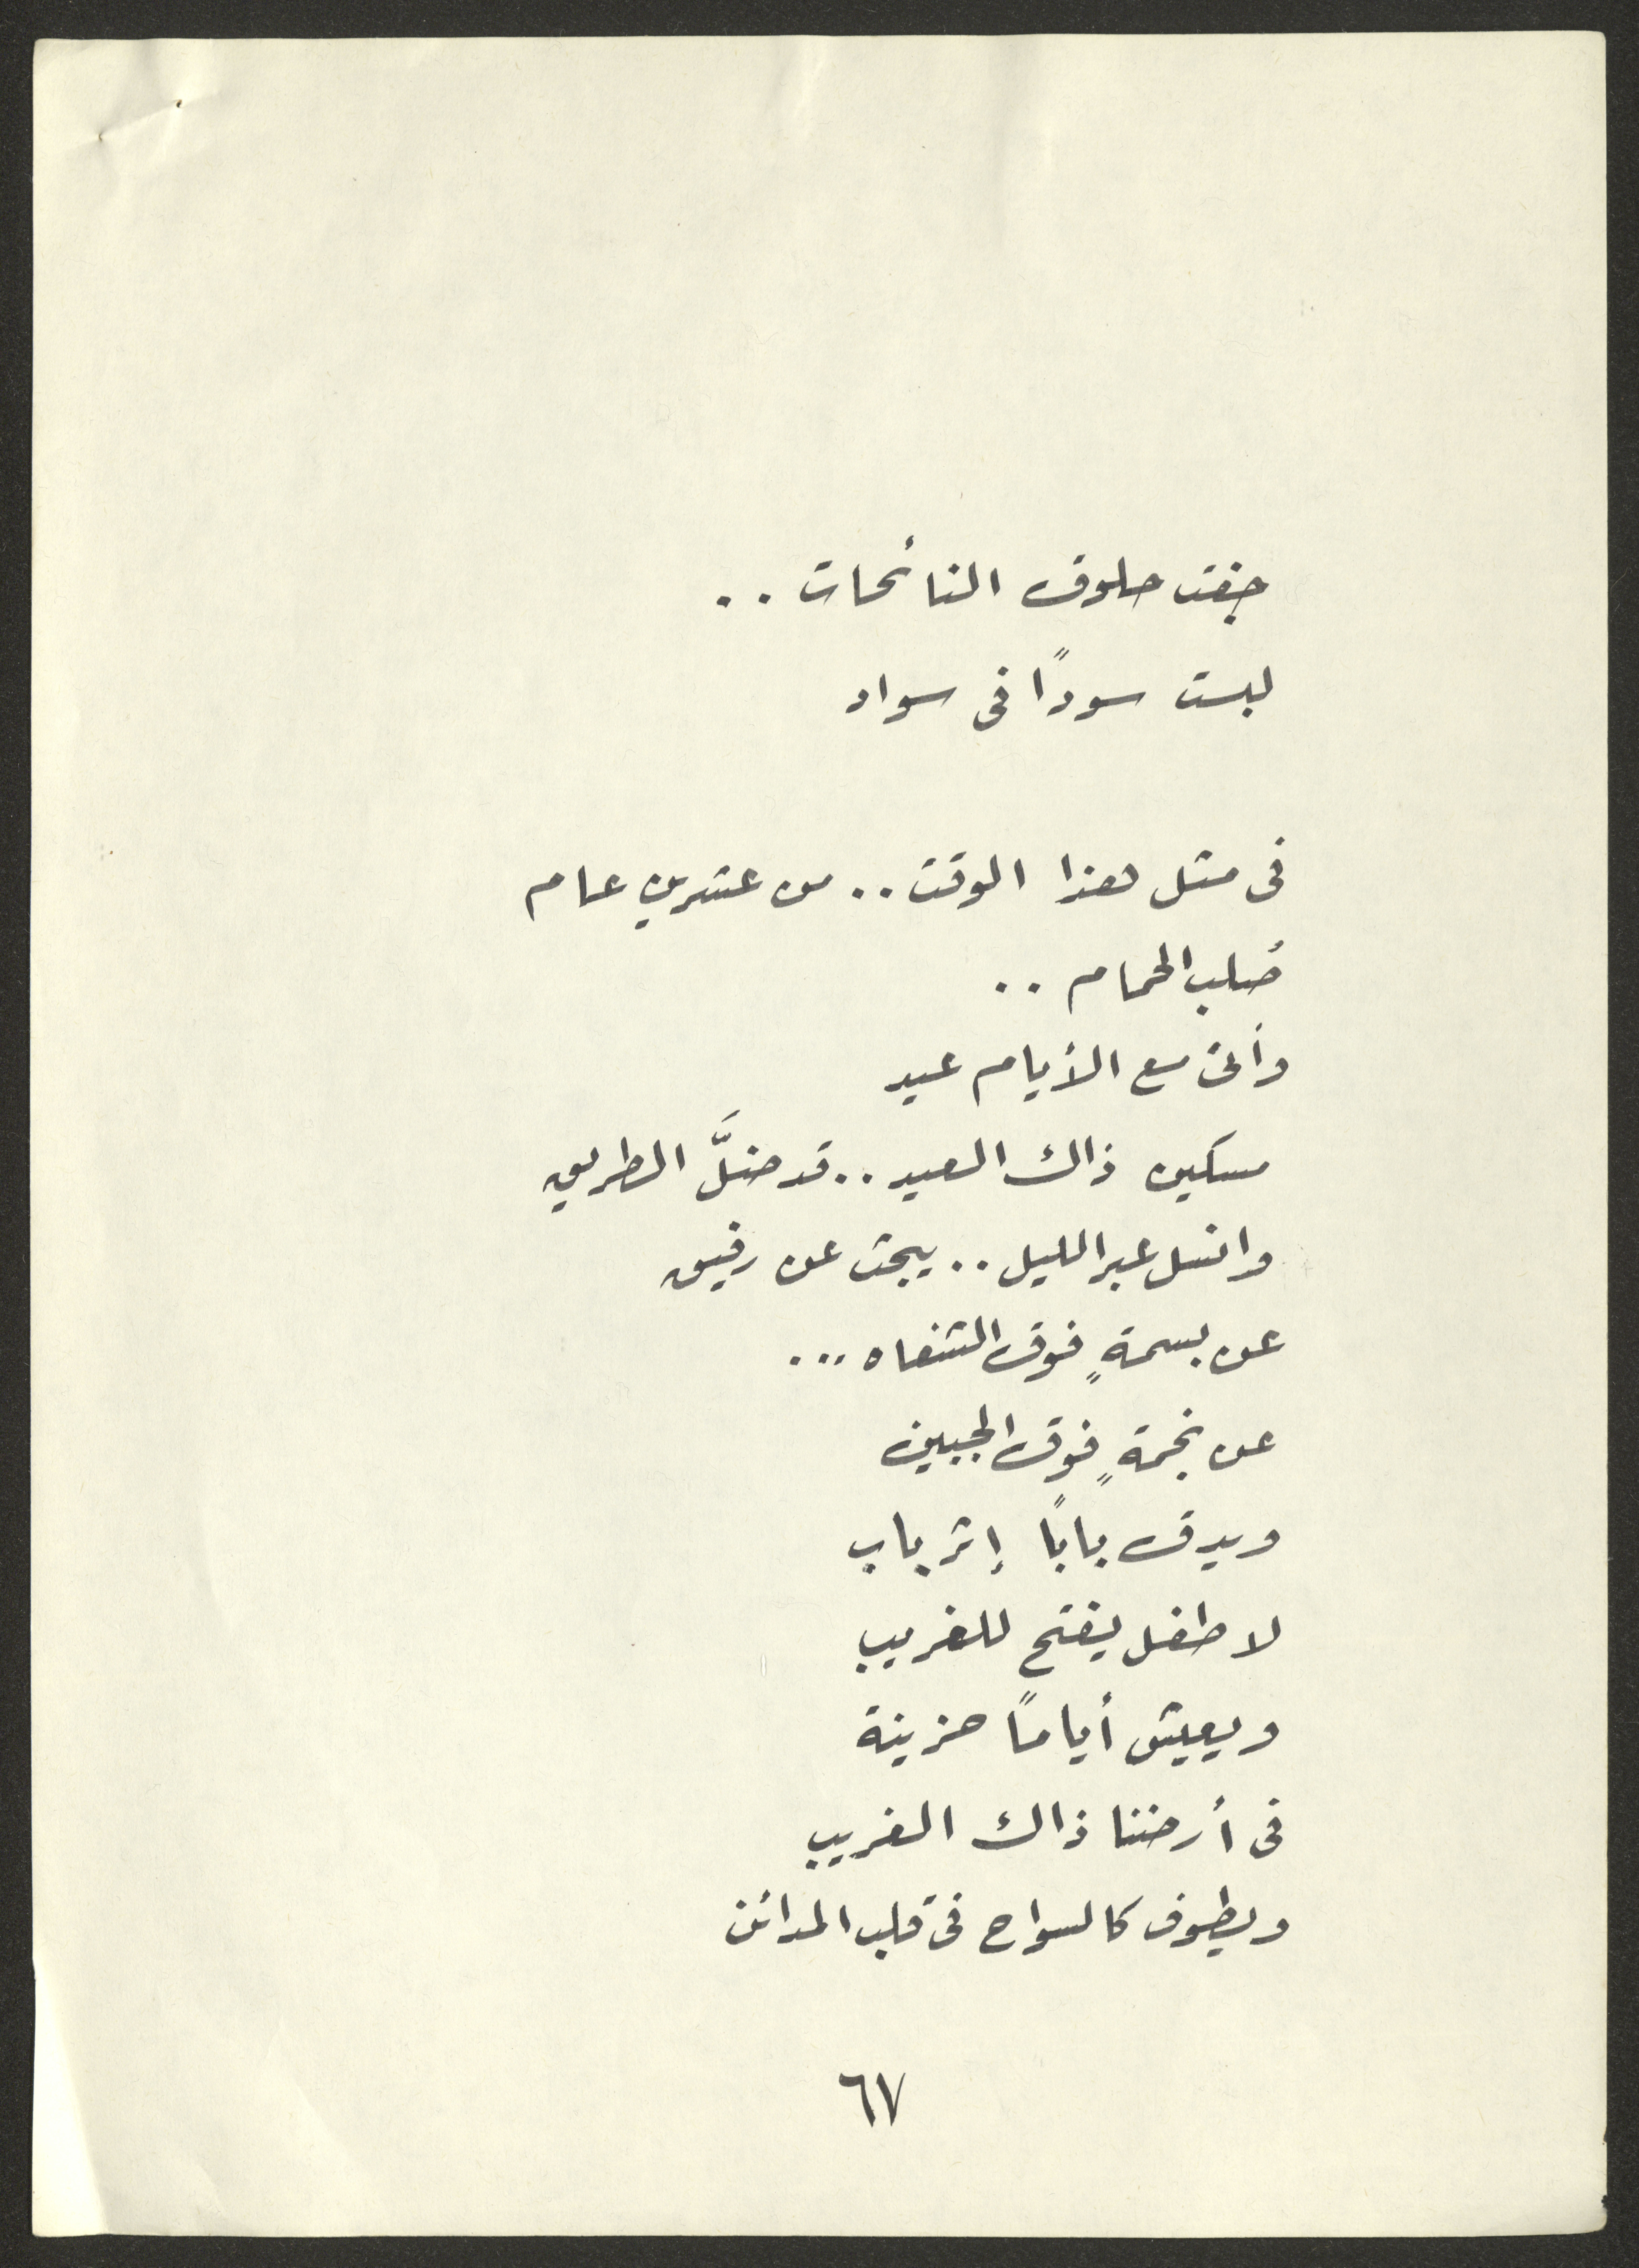 جفت حلوق النائحات ..
لبست سودًا فى سواد
فى مثل هذا الوقت .. من عشرين عام
صُلب الحمام ..
وأتى مع الأيام عيد
مسكين ذاك العيد .. قد ضلَّ الطريق
وانسل عبر الليل .. يبحث عن رفيق
عن بسمةٍ فوق الشفاه ...
عن نجمةٍ فوق الجبين
ويدق بابًا إثر باب
لا طفل يفتح للغريب
ويعيش أيامًا حزينة
فى أرضنا ذاك الغريب
ويطوف كالسواح فى قلب المدائن
٦٧